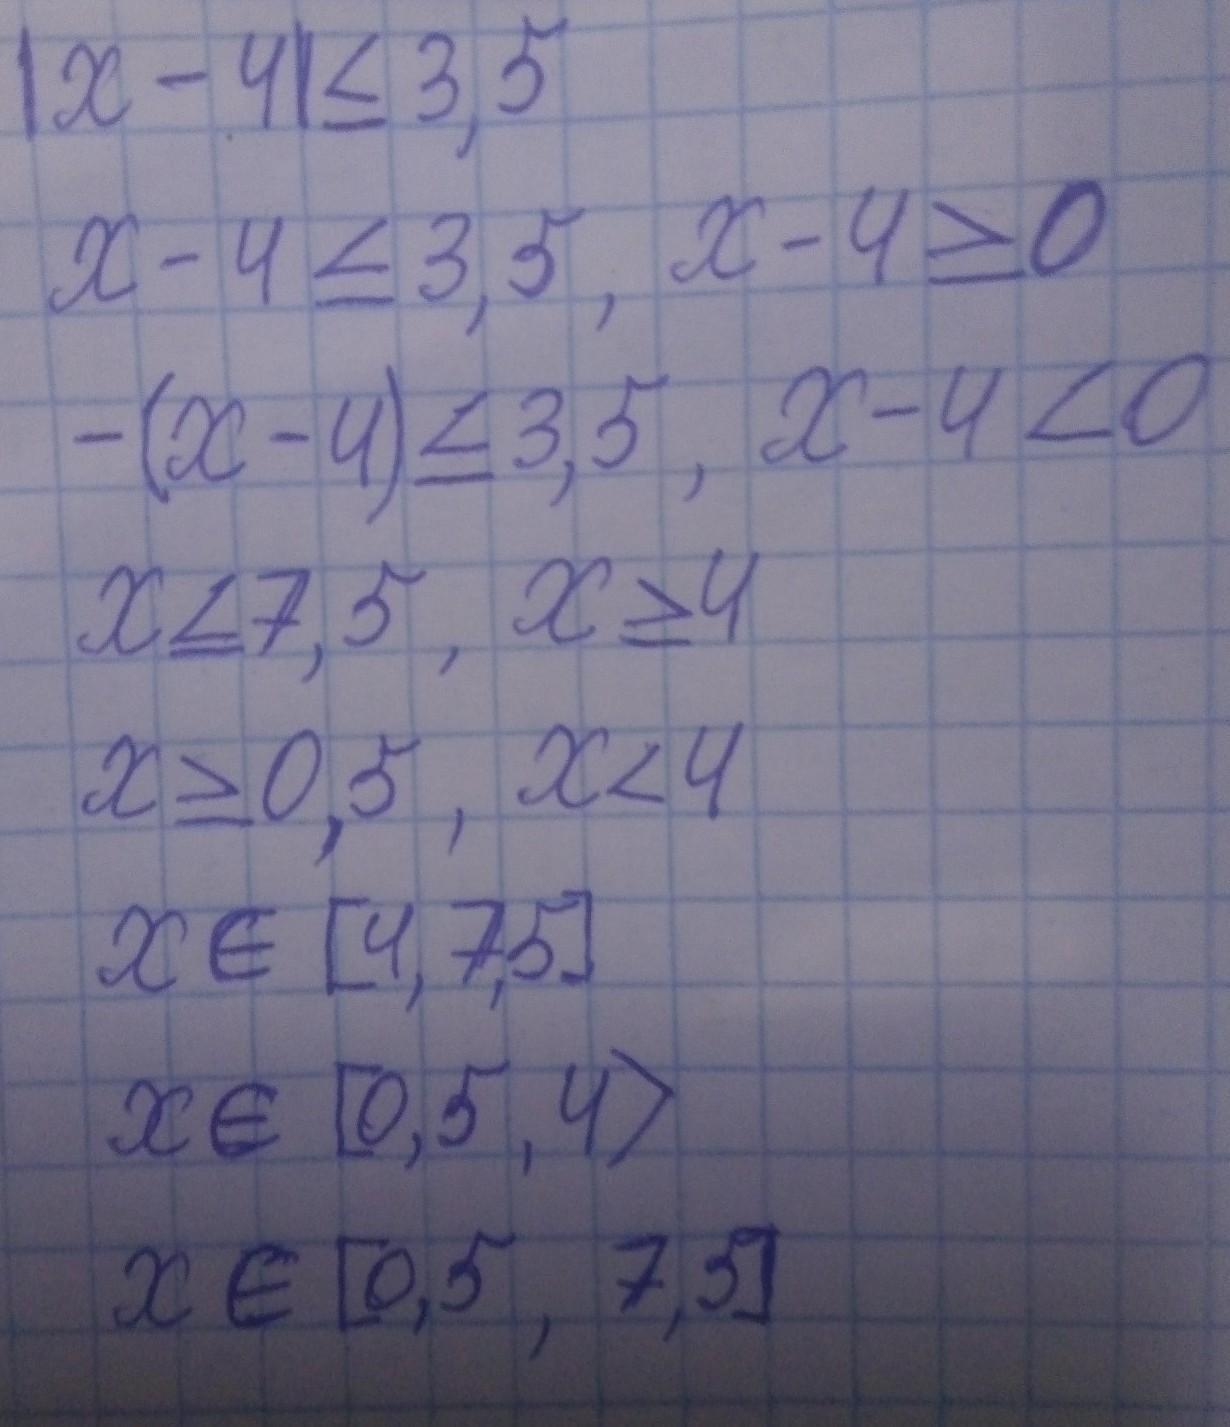 |x - 4| ≤ 3,5
x - 4 ≤ 3,5 , x - 4 ≥ 0
-(x - 4) ≤ 3,5 , x - 4 < 0
x ≤ 7,5 , x ≥ 4
x ≥ 0,5 , x < 4
x ∈ [4, 7,5]
x ∈ [0,5 , 4>
x ∈ [0,5 , 7,5]